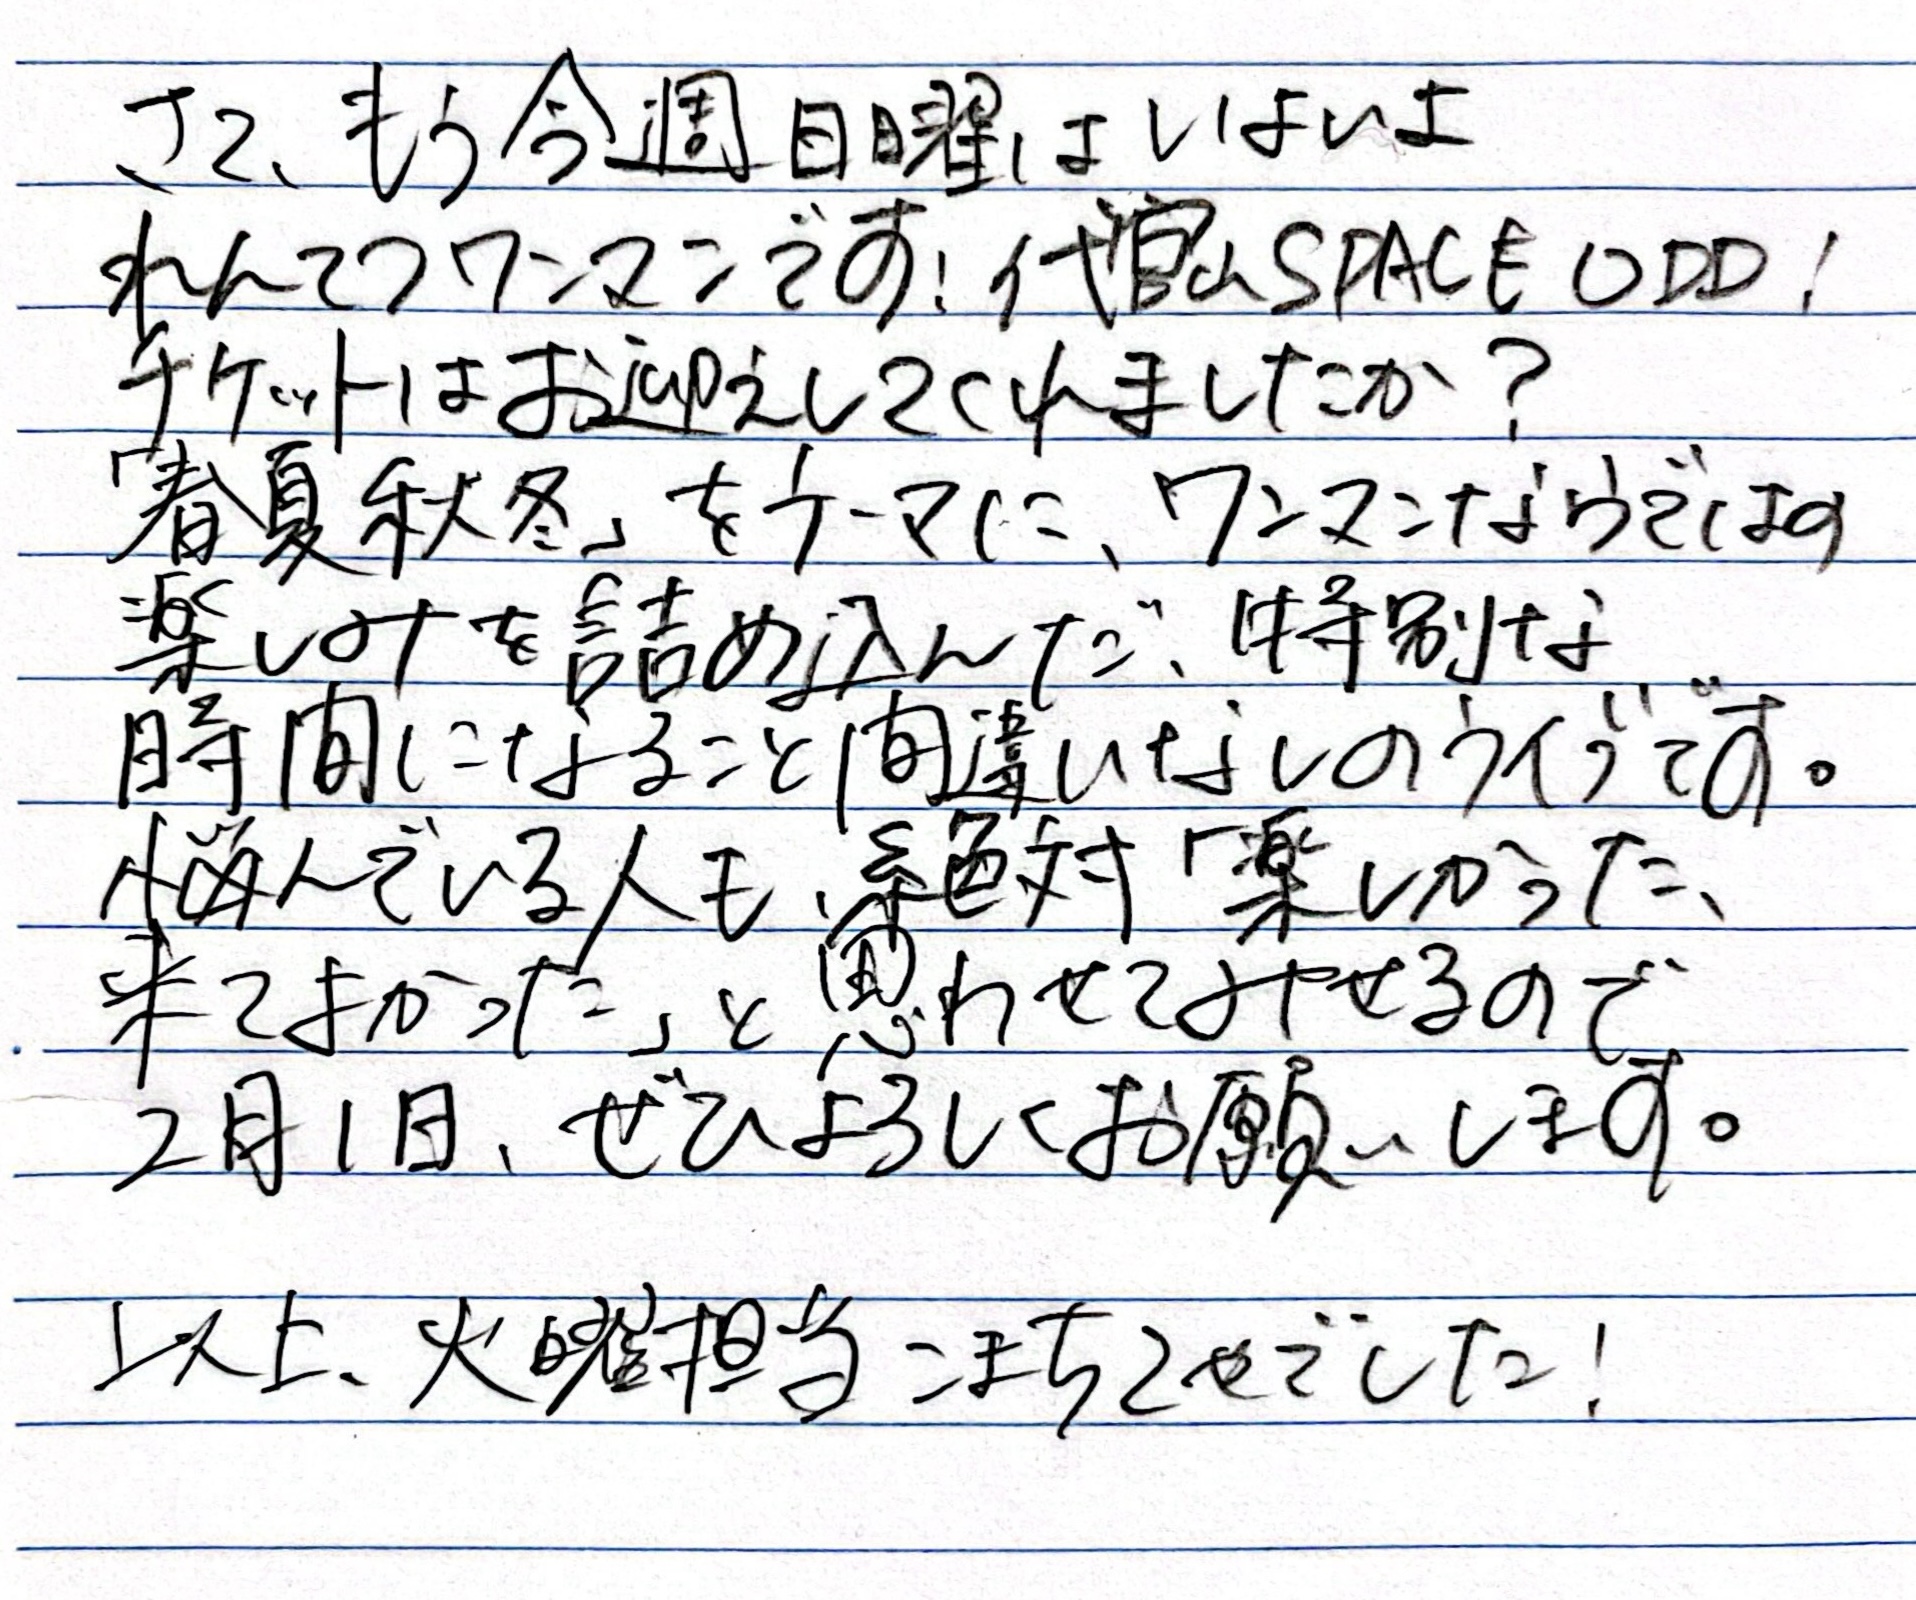 さて、もう今週日曜はいよいよ
れんてつワンマンです!代官山SPACE ODD!
チケットはお迎えしてくれましたか?
「春夏秋冬」をテーマに、ワンマンならではの
楽しみを詰め込んだ、特別な
時間になること間違いなしのライブです。
悩んでいる人も、絶対「楽しかった、
来てよかった」と思わせてみせるので
2月1日、ぜひよろしくお願いします。
以上、火曜担当こまちてせでした!